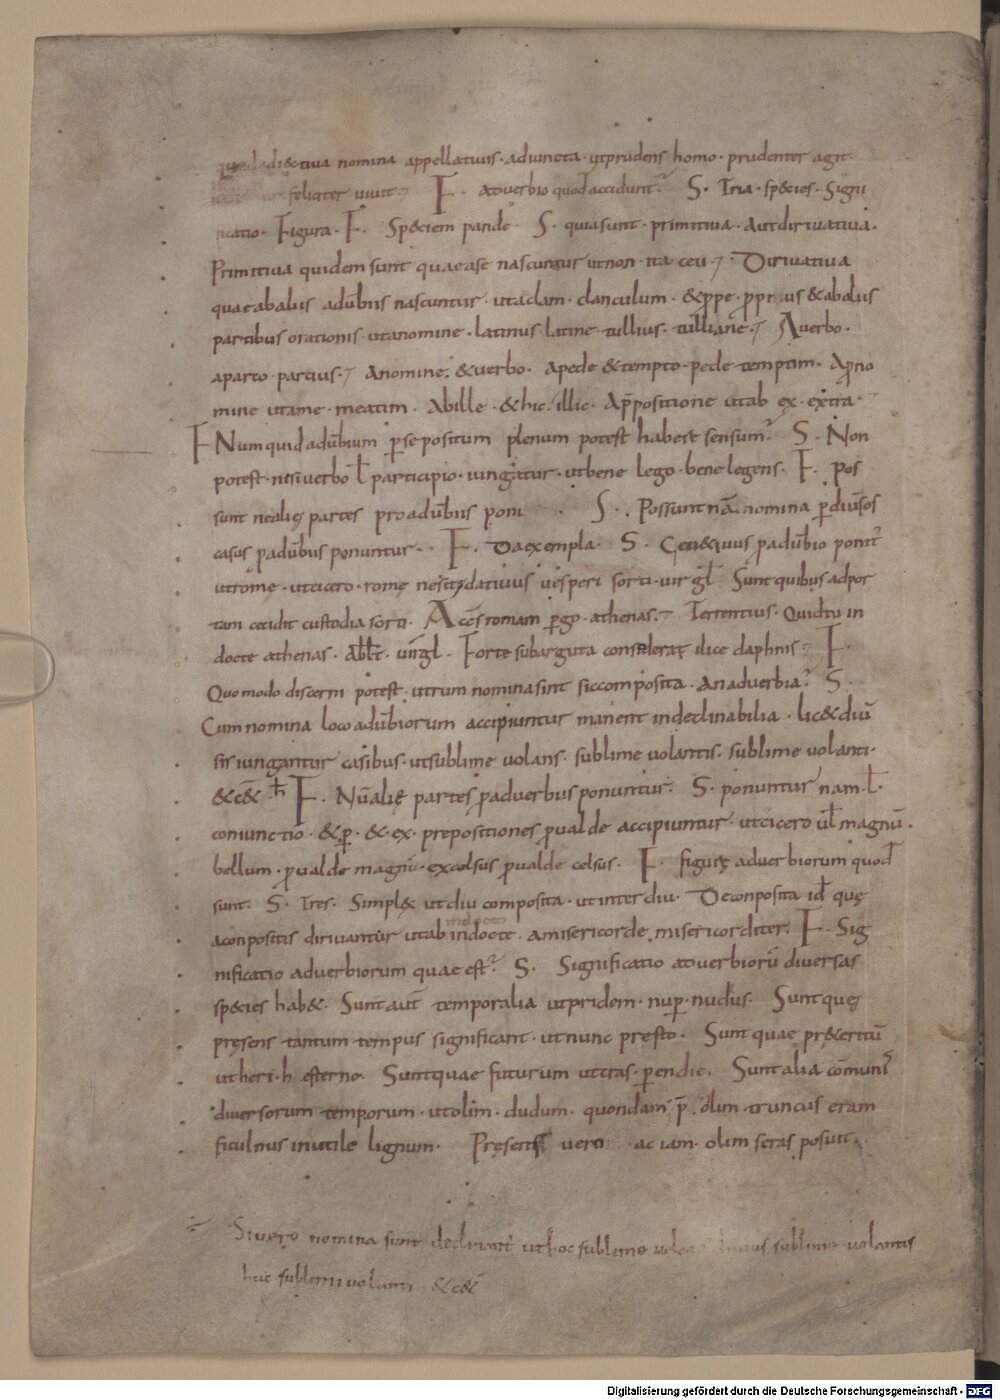 adi&ctiua nomina appellatiuis · adiuncta · ut prudens homo · prudenter agit·
feliciter uiuit ⁊ F · Aduerbio quod accidunt? S · Tria · sp&cies · Signi
ficatio · Figura · F · Sp&ciem pande · S · quia sunt · primitiua · aut diriuatiua ·
Primitiua quidem sunt quae a se nascuntur ut non · ita · ceu ⁊ Diriuatiua
quae ab aliis adūbiis nascuntur · ut a clam · clanculum · & ꝓpe · ꝓpi us & ab aliis
partibus orationis · ut a nomine · latinus · latine · tullius · tulliane ⁊ A uerbo ·
a parto · partius · ⁊ A nomine · & uerbo · a pede & tempto · pede temptim · A ꝓno
mine ut a me · meatim · Ab ille · & hic · illic · A p̄positione ut ab ex · extra
F Numquid adūbium ꝑ se positum plenum potest habere sensum? S · Non
potest · nisi uerbo ł participio · iungatur · ut bene lego · bene legens · F · Pos
sunt ne alię partes pro adūbiis poni · S · Possunt nā nomina ꝑ diuersos
casus ꝑ adūbiis ponuntur · F · Da exempla · S · Gen&iuus ꝑ aduūbio ponit᷑
ut romę · ut cicero · romę nescis datiuus uesperi sorti · uirgł Sunt quibus ad por
tam cecidit custodia sorti · Acc̄s romam ꝑgo · athenas · ⁊ Terrentius · Quid tu in
docte athenas · Abłt · uirgł · Forte sub arguta consederat ilice daphnis ⁊ F ·
Quomodo discerni potest · utrum nomina sint sic composita · an aduerbia? S ·
Cum nomina loco adūbiorum accipiuntur manent indeclinabilia · lic& diū
sis iungantur casibus · ut sublime uolans · sublime uolantis · sublime uolanti ·
& c&̄ F · Nū alię partes ꝓ aduerbiis ponuntur · S · ponuntur nam · ł ·
coniunctio · & ꝑ · & · ex · prepositiones ꝓ ualde accipiuntur · ut cicero uł magnū ·
bellum · ꝓ ualde magnū · excelsus ꝓ ualde celsus · F · figurę aduerbiorum quod
sunt · S · Tres · Simpl& ut diu composita · ut inter diu · Deconposita id quę
a conpositis diriuantur ut ab indocto indocte · a misericorde · misericorditer · F · Sig
nificatio aduerbiorum quae est? S · Significatio aduerbiorū diuersas
sp&cies hab& · Sunt aut̄ temporalia ut pridem · nuꝑ · nudius · Sunt quę
pręsens tantum tempus significant · ut nunc pręsto · Sunt quae pr&eritū
ut heri · hesterno · Sunt quae futurum ut cras · ꝑendie · Sunt alia cōmunis
diuersorum temporum · ut olim · dudum · quondam p̄ · olim truncus eram
ficulnus inutile lignum · Pręsentis uero ac iam · olim seras posuit ·
Si uero nomina sunt declinant᷑ ut hoc sublime uolans huius sublimis uolantis
huic sublimi uolanti & c&̄
Digitalisierung gefördert durch die Deutsche Forschungsgemeinschaft - DFG